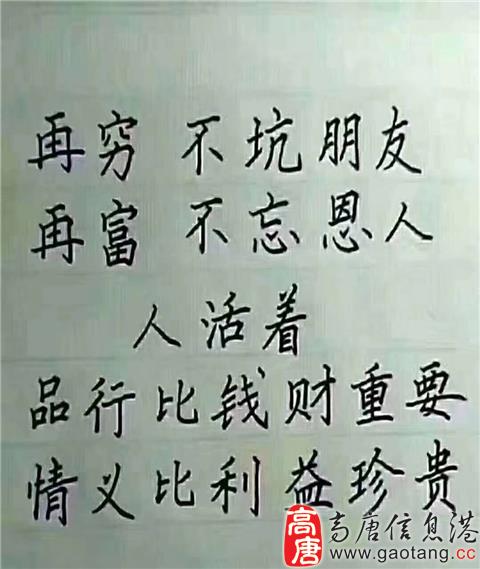 再穷 不坑朋友
再富 不忘恩人
人活着
品行比钱财重要
情义比利益珍贵
高唐 高唐信息港
www.gaotang.cc